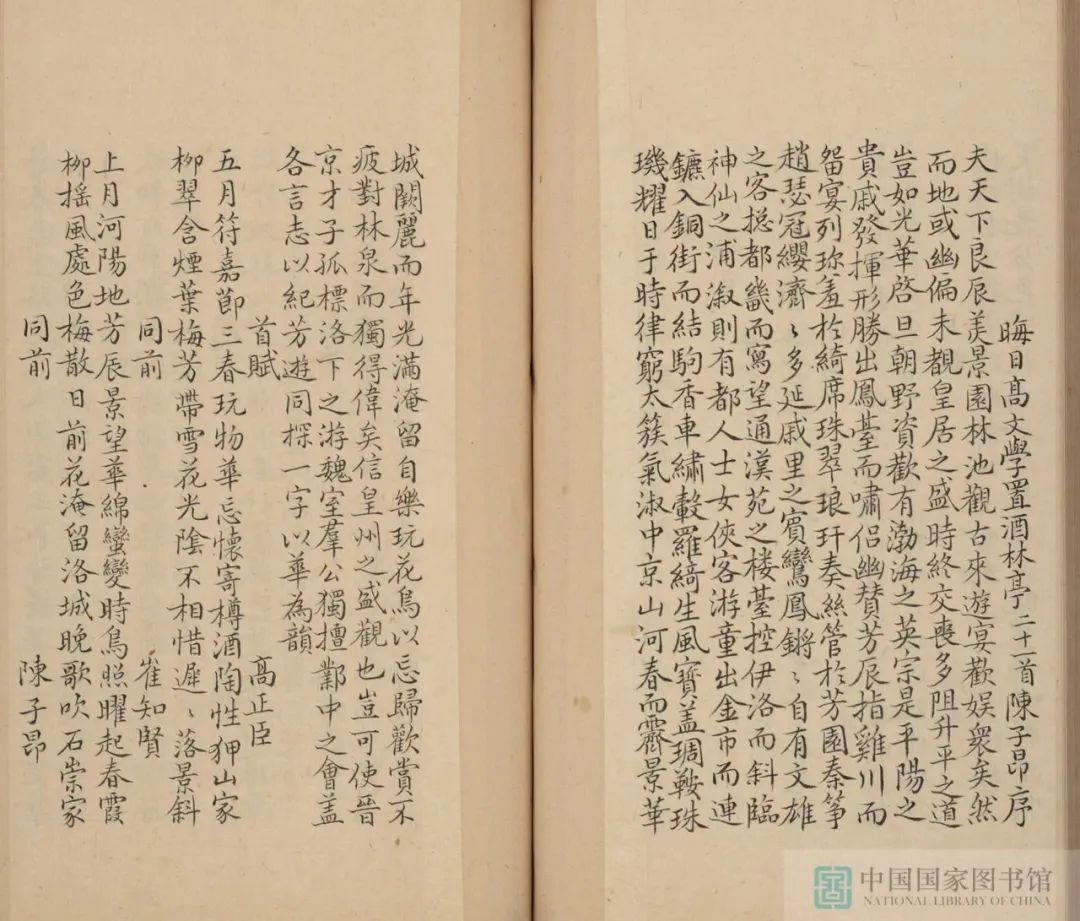 晦日高文學置酒林亭二十一首陳子昂序
夫天下良辰美景園林池觀古來遊宴歡娱衆矣然
而地或幽偏未覩皇居之盛時終交喪多阻升平之道
豈如光華啓旦朝野資歡有渤海之英宗是平陽之
貴戚發揮形勝出鳳臺而嘯侣幽賛芳辰指雞川而
畱宴列珎羞於綺席珠翠琅玕奏絲管於芳園秦筝
趙瑟冠纓濟〻多延戚里之賓鸞鳳鏘〻自有文雄
之客揔都畿而寫望通漢苑之楼臺控伊洛而斜臨
神仙之浦溆則有都人士女俠客游童出金市而連
鑣入銅街而結駟香車繡轂羅綺生風寶盖琱鞍珠
璣耀日于時律窮太蔟氣淑中京山河春而霽景華
城闕麗而年光滿淹留自樂玩花鳥以忘歸歡賞不
疲對林泉而獨得偉矣信皇州之盛觀也豈可使晉
京才子孤標洛下之游魏室羣公獨擅鄴中之會盖
各言志以紀芳遊同探一字以華為韻
首賦 高正臣
五月符嘉莭三春玩物華忘懷寄樽酒陶性狎山家
柳翠含煙葉梅芳帶雪花光陰不相惜遲〻落景斜
同前 崔知賢
上月河陽地芳辰景望華綿蠻變時鳥照曜起春霞
柳摇風處色梅散日前花淹留洛城晚歌吹石崇家
同前 陳子昂
中国国家图书馆
NATIONAL LIBRARY OF CHINA